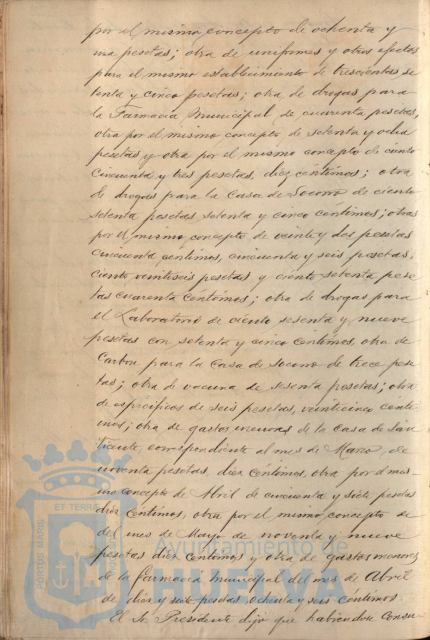 por el mismo concepto de ochenta y
una pesetas; otra de uniformes y otros efectos
para el mismo establecimiento de trescientas se
tenta y cinco pesetas; otra de drogas para
la Farmacia Municipal de cuarenta pesetas,
otra por el mismo concepto de setenta y ocho
pesetas y otra por el mismo concepto de ciento
cincuenta y tres pesetas, diez céntimos; otra
de drogas para la Casa de Socorro de ciento
setenta pesetas setenta y cinco céntimos; otras
por el mismo concepto de veinte y dos pesetas
cincuenta céntimos, cincuenta y seis pesetas,
ciento veintiseis pesetas y ciento setenta pese
tas cuarenta céntimos; otra de drogas para
el Laboratorio de ciento sesenta y nueve
pesetas con setenta y cinco céntimos, otra de
Carbon para la Casa de Socorro de trece pese
tas; otra de vacuna de sesenta pesetas; otra
de específicos de seis pesetas, veinticinco cénti
mos; otra de gastos menores de la Casa de San
Vicente, correspondiente al mes de Marzo, de
noventa pesetas, diez céntimos, otra por el mis-
mo concepto de Abril de cincuenta y siete pesetas
diez céntimos, otra por el mismo concepto de
del mes de Mayo de noventa y nueve
pesetas diez céntimos y otra de gastos menores
de la farmacia municipal del mes de Abril
de diez y siete pesetas, ochenta y seis céntimos.
El Sr. Presidente dijo que habiendose consu
PORTUS MARIS
ET TERRÆ
Ayuntamiento de
HUELVA